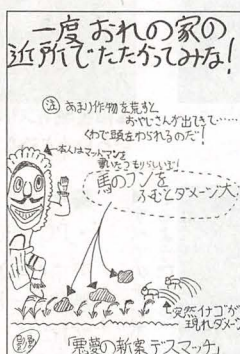 一度おれの家の
近所でたたかってみな!
注 あまり作物を荒すと
おやじさんが出てきて……
くわで頭をわられるのだ!
本人はマッドマンを
書いたつもりらしいぞ!
馬のフンを
ふむとダメージ大
突然イナゴが
現れダメージ
「悪夢の新案デスマッチ」